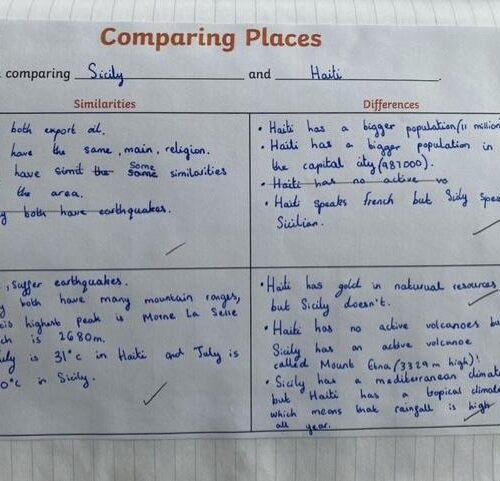 Comparing Places
comparing Sicily and Haiti.
Similarities
both export oil.
have the same, main, religion.
have simit the some same similarities
the area.
both have earthquakes.
Differences
• Haiti has a bigger population (11 million
• Haiti has a bigger population in
the capital city (987000).
• Haiti has no active vo
• Haiti speaks french but Sicily spea
Sicilian.
, suffer earthquakes.
y both have many mountain ranges,
highest peak is Morne La Selle
ch is 2680m.
uly is 31°c in Haiti and July is
0°c in Sicily.
• Haiti has gold in naturual resources
but Sicily doesn't.
• Haiti has no active volcanoes bu
Sicily has an active volcanoe
called Mount Etna (3329m high)!
• Sicily has a mediterranean climate
but Haiti has a tropical climate
which means that rainfall is high
all year.